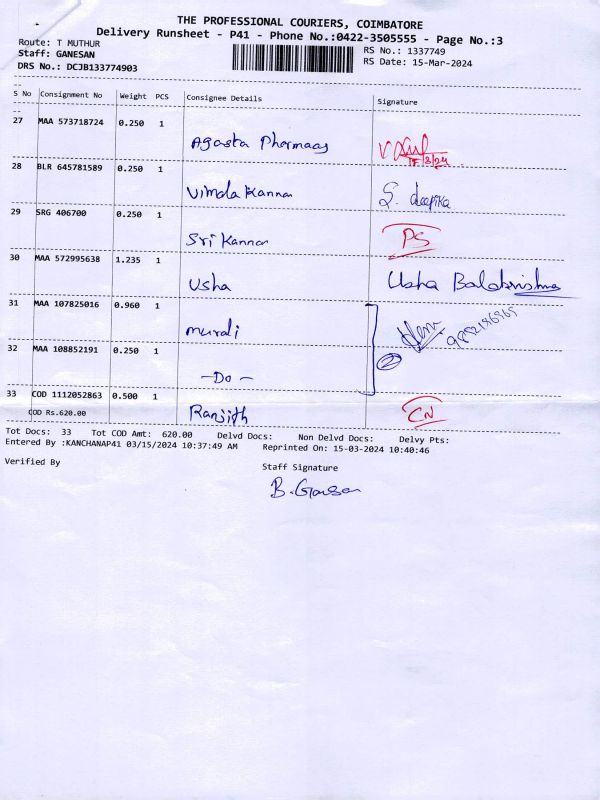 THE PROFESSIONAL COURIERS, COIMBATORE
Delivery Runsheet - P41 - Phone No.:0422-3505555 - Page No.:3
Route: T MUTHUR
Staff: GANESAN
DRS No.: DCJB133774903
RS No.: 1337749
RS Date: 15-Mar-2024
S No Consignment No Weight PCS Consignee Details Signature
27 MAA 573718724 0.250 1
Agasta Pharmaas
28 BLR 645781589 0.250 1
Vimala Kannan S. deepika
29 SRG 406700 0.250 1
Sri Kannan PS
30 MAA 572995638 1.235 1
Usha Usha Balakrishna
31 MAA 107825016 0.960 1
Murali
32 MAA 108852191 0.250 1
2
- Do -
33 COD 1112052863 0.500 1
COD Rs.620.00 Ranjith CN
Tot Docs: 33 Tot COD Amt: 620.00 Delvd Docs: Non Delvd Docs: Delvy Pts:
Entered By :KANCHANAP41 03/15/2024 10:37:49 AM Reprinted On: 15-03-2024 10:40:46
Verified By
Staff Signature